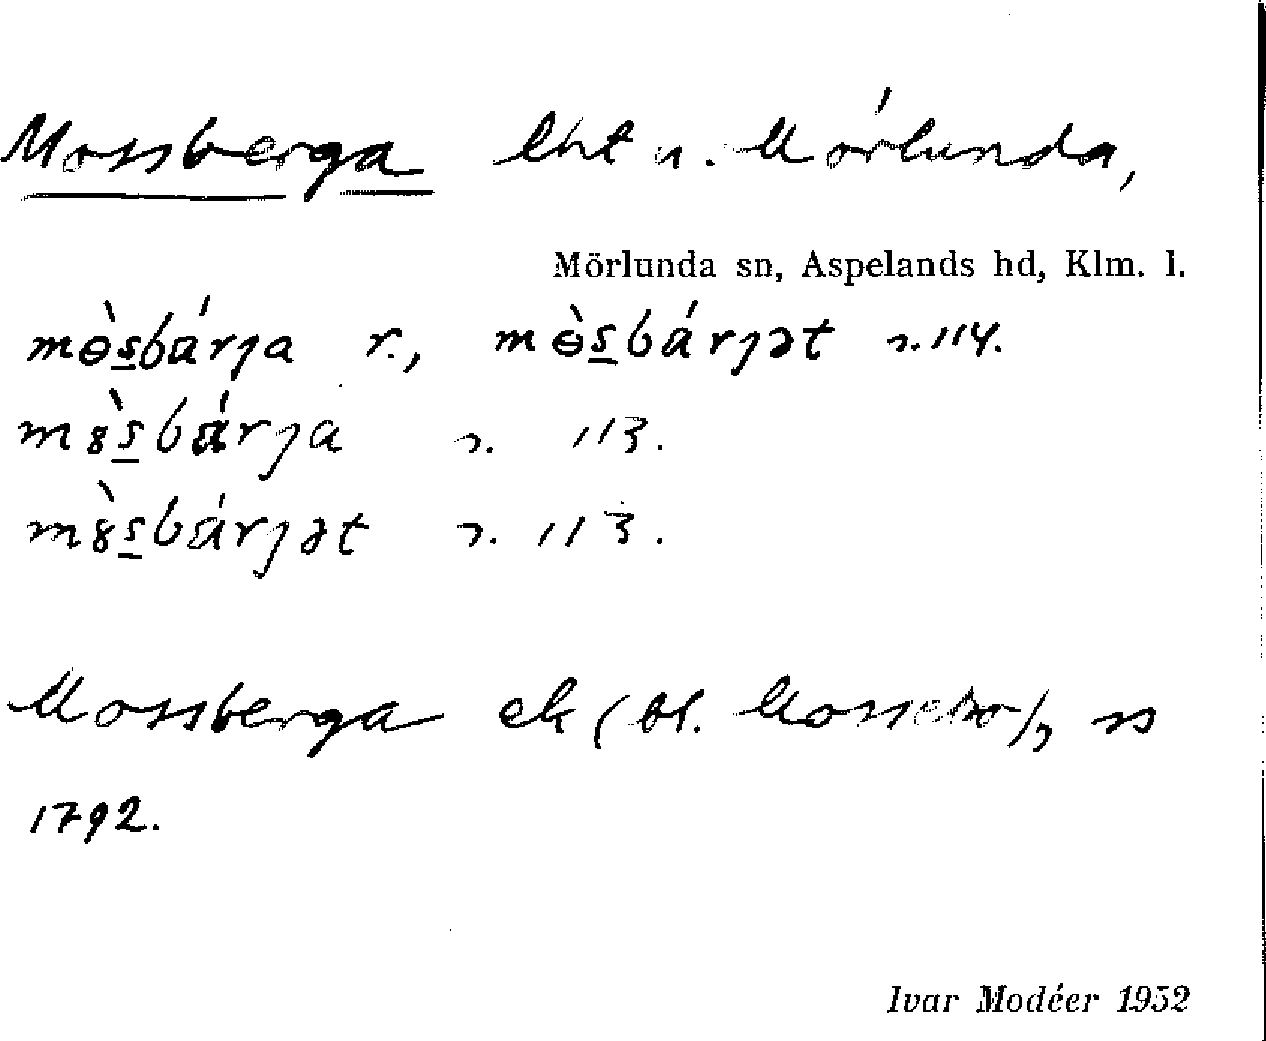 Mossberga lht u. Mörlunda,
Mörlunda sn, Aspelands hd, Klm. l.
mɵ̀sbárȷa r., mɵ̀sbárȷət n. 114.
m8̀sbárȷa n. 113.
m8̀sbárȷət n. 113.
Mossberga ek (bl.
1792.
Ivar Modéer 1932